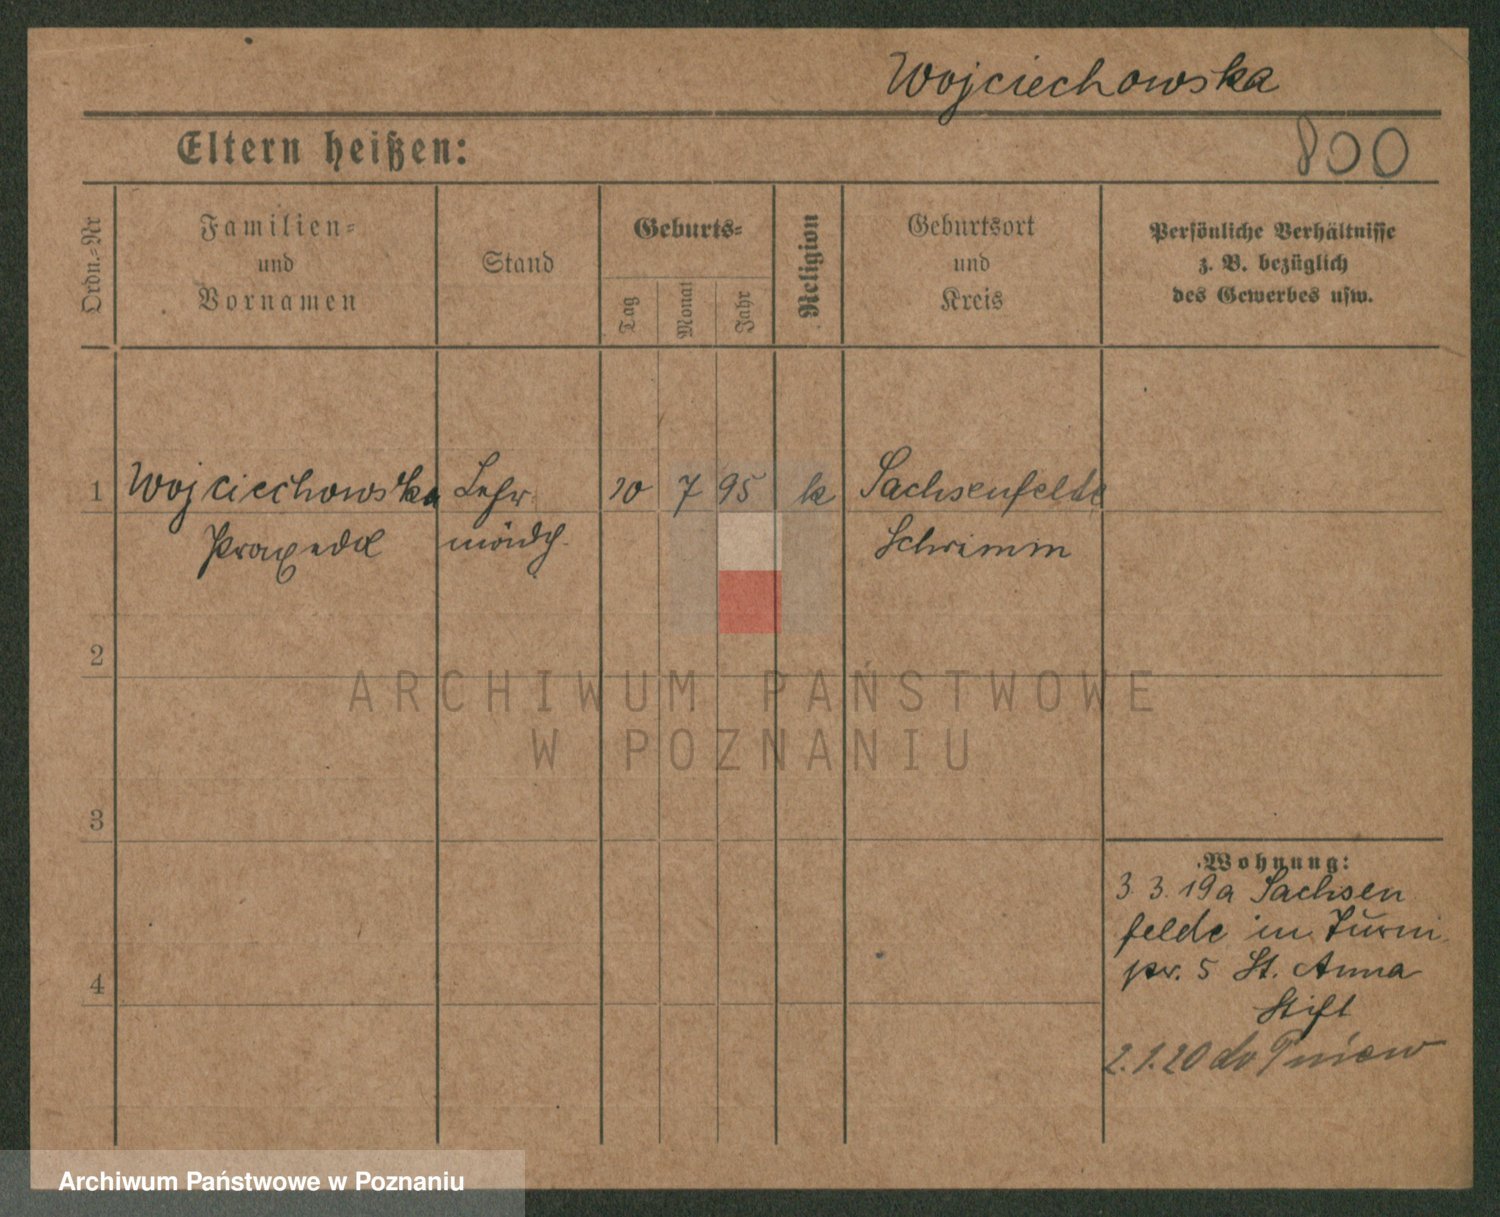 Wojciechowska
Eltern heißen:
800
Ordn.-Nr
Familien-
und
Vornamen
Stand
Geburts-
Tag
Monat
Jahr
Religion
Geburtsort
und
Kreis
Persönliche Verhältnisse
z. B. bezüglich
des Gewerbes usw.
1 Wojciechowska Lehr 10 7 95 k Sachsenfelde
Praxeda mädch. Schrimm
2
3
4
Wohnung:
3. 3. 19 a Sachsen
felde in Turm
pr. 5 St. Anna
Stift
2.1.20 do Pniew
ARCHIWUM PAŃSTWOWE
W POZNANIU
Archiwum Państwowe w Poznaniu